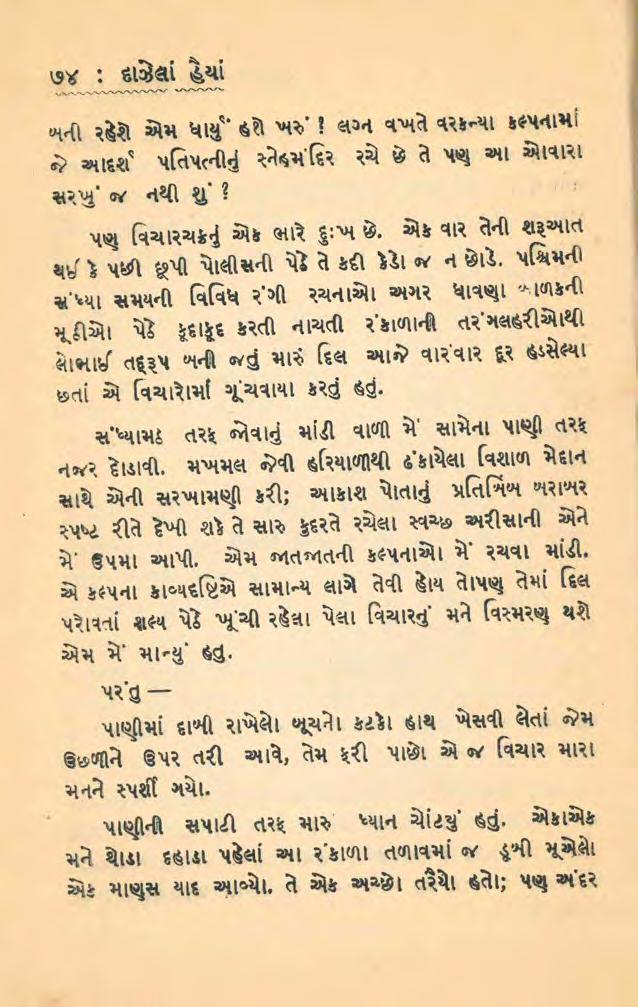 ૭૪ : દાઝેલાં હૈયાં
બની રહેશે એમ ધાર્યું હશે ખરું ! લગ્ન વખતે વરકન્યા કલ્પનામાં
જે આદર્શ પતિપત્નીનું સ્નેહમંદિર રચે છે તે પણ આ ઓવારા
સરખું જ નથી શું ?
પણ વિચારચક્રનું એક ભારે દુઃખ છે. એક વાર તેની શરૂઆત
થઈ કે પછી છૂપી પોલીસની પેઠે તે કદી કેડો જ ન છોડે. પશ્ચિમની
સંધ્યા સમયની વિવિધ રંગી રચનાઓ અગર ધાવણા બાળકની
મૂઠીઓ પેઠે કૂદાકૂદ કરતી નાચતી રંકાળાની તરંગલહરીઓથી
લોભાઈ તદ્દરૂપ બની જતું મારું દિલ આજે વારંવાર દૂર હડસેલ્યા
છતાં એ વિચારોમાં ગૂંચવાયા કરતું હતું.
સંધ્યામઠ તરફ જોવાનું માંડી વાળી મેં સામેના પાણી તરફ
નજર દોડાવી. મખમલ જેવી હરિયાળીથી ઢંકાયેલા વિશાળ મેદાન
સાથે એની સરખામણી કરી; આકાશ પોતાનું પ્રતિબિંબ બરાબર
સ્પષ્ટ રીતે દેખી શકે તે સારુ કુદરતે રચેલા સ્વચ્છ અરીસાની એને
મેં ઉપમા આપી. એમ જાતજાતની કલ્પનાઓ મેં રચવા માંડી.
એ કલ્પના કાવ્યદૃષ્ટિએ સામાન્ય લાગે તેવી હોય તોપણ તેમાં દિલ
પરોવતાં શલ્ય પેઠે ખૂંચી રહેલા પેલા વિચારનું મને વિસ્મરણ થશે
એમ મેં માન્યું હતુ.
પરંતુ —
પાણીમાં દાબી રાખેલો બૂચનો કટકો હાથ ખેસવી લેતાં જેમ
ઉછળીને ઉપર તરી આવે, તેમ ફરી પાછો એ જ વિચાર મારા
મનને સ્પર્શી ગયો.
પાણીની સપાટી તરફ મારુ ધ્યાન ચોંટયું હતું. એકાએક
મને થોડા દહાડા પહેલાં આ રંકાળા તળાવમાં જ ડૂબી મૂએલો
એક માણસ યાદ આવ્યો. તે એક અચ્છો તરૈયો હતો; પણ અંદર